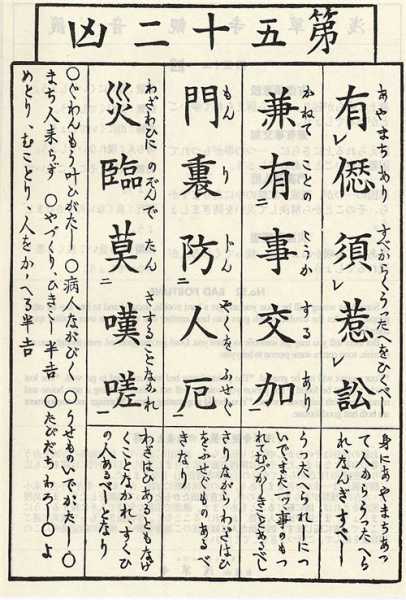 第五十二凶
あやまちあり すべからくうったへをひくべし
有愆須惹訟
身にあやまちあつ
て人からうったへら
れ、なんぎすべし
かねて ことの こうか する あり
兼有事交加
うったへられしにつ
いでまた一ツ、事のもつ
れてむづかしきことあるべし
もん り じん やくをふせぐ
門裏防人厄
さりながらわざはひ
をふせぐものあるべ
きなり
わざわひに のぞんで たん さすることなかれ
災臨莫嘆嗟
わざはひあるともなげ
くことなかれ、すくひ
の人あるべしとなり
〇ぐわんもう叶ひがたし 〇病人ながびく 〇うせものいでがたし 〇
まち人来らず 〇やづくり、ひきこし半吉 〇たびだちわろし 〇よ
めとり、むことり、人をかゝへる半吉